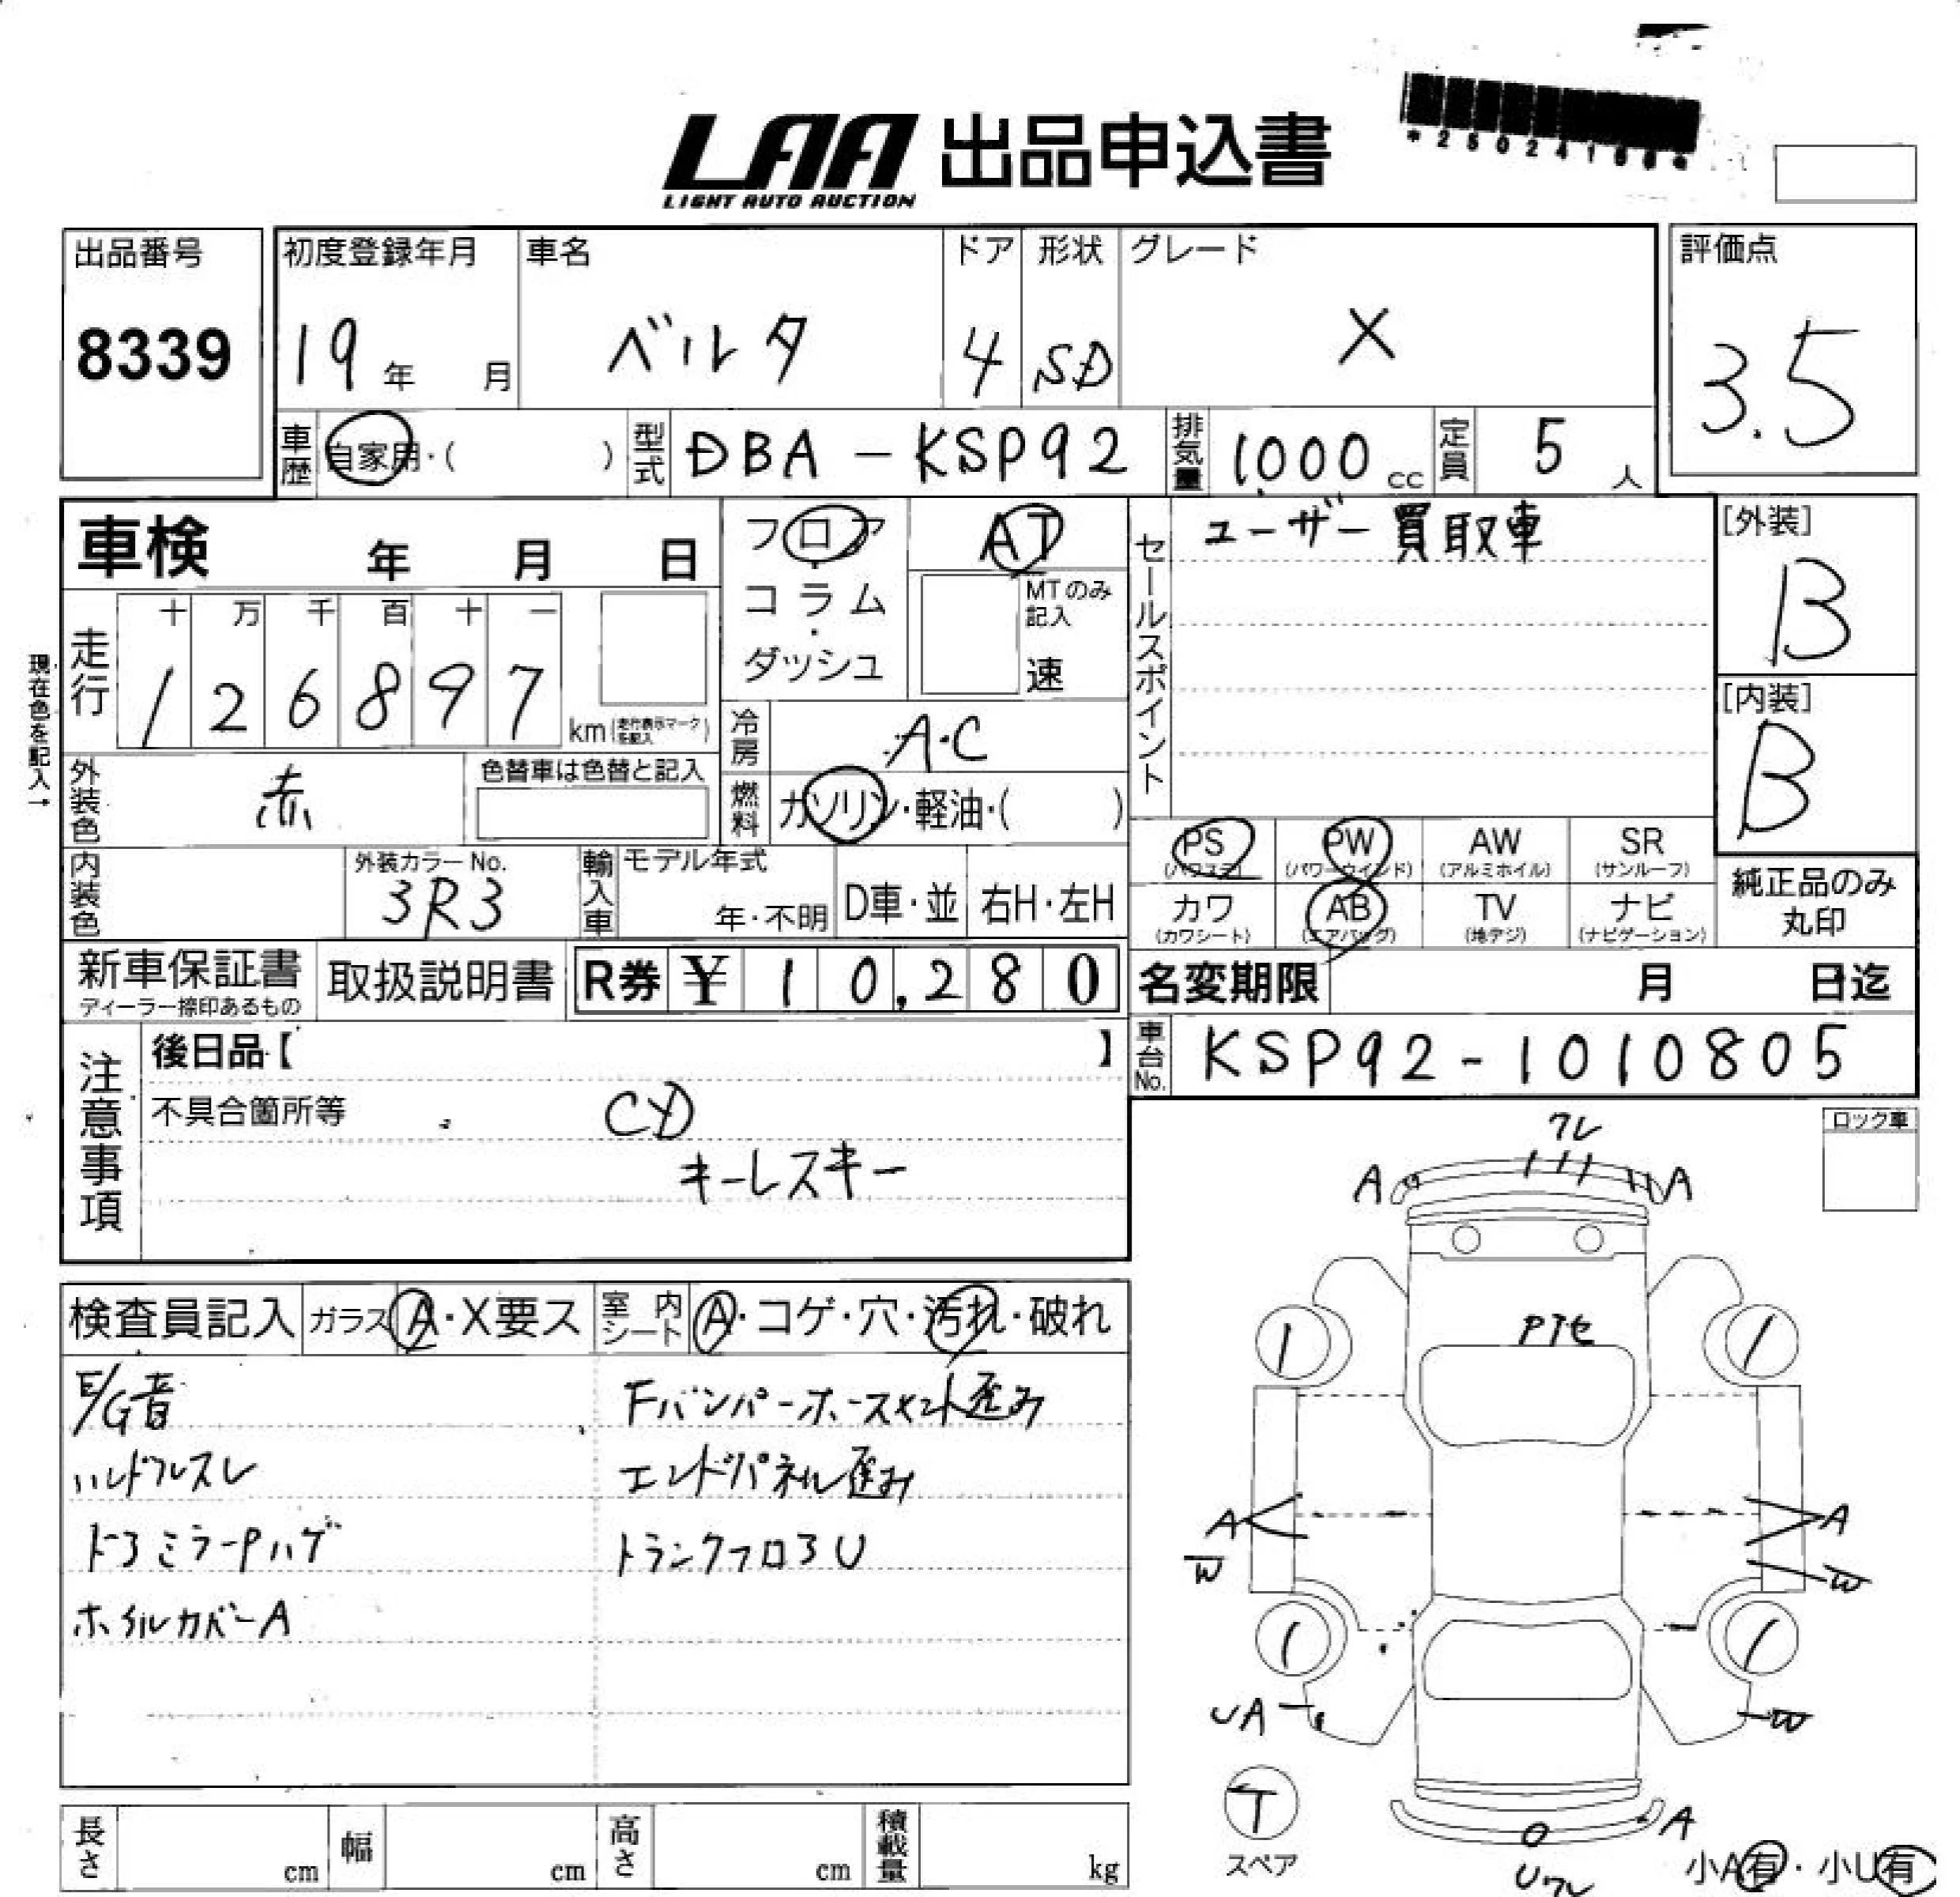 *2502418
LAA 出品申込書
LIGHT AUTO AUCTION
出品番号
8339
初度登録年月
19年 月
車名
ベルタ
ドア
4
形状
SD
グレード
X
評価点
3.5
車歴 自家用・( )
型式 DBA-KSP92
排気量 1,000 cc
定員 5 人
車検 年 月 日
フロア
コラム
・
ダッシュ
AT
MTのみ
記入
速
セールスポイント
ユーザー買取車
[外装]
B
[内装]
B
現在色を記入→
走行
十 万 千 百 十 一
1 2 6 8 9 7
km(走行表示マークを記入)
冷房 A・C
燃料 ガソリン・軽油・( )
外装色 赤
色替車は色替と記入
PS
(パワステ)
PW
(パワーウインド)
AW
(アルミホイル)
SR
(サンルーフ)
カワ
(カワシート)
AB
(エアバッグ)
TV
(地デジ)
ナビ
(ナビゲーション)
純正品のみ
丸印
内装色
外装カラーNo.
3R3
輸入車
モデル年式
年・不明
D車・並
右H・左H
新車保証書
ディーラー捺印あるもの
取扱説明書
R券 ¥ 10,280
名変期限 月 日迄
車台No. KSP92-1010805
注意事項
後日品【 】
不具合箇所等
CD
キーレスキー
ロック車
検査員記入
ガラス A・X要ス
室内シート A・コゲ・穴・汚れ・破れ
E/G音
ハンドルスレ
ドアミラーPハゲ
ホイルカバーA
Fバンパーホースメント歪み
エンドパネル歪み
トランクフロアU
ワレ
A
A
1
1
A
W
A
W
1
1
UA
W
T
スペア
A
Uワレ
小A有・小U有
長さ cm
幅 cm
高さ cm
積載量 kg